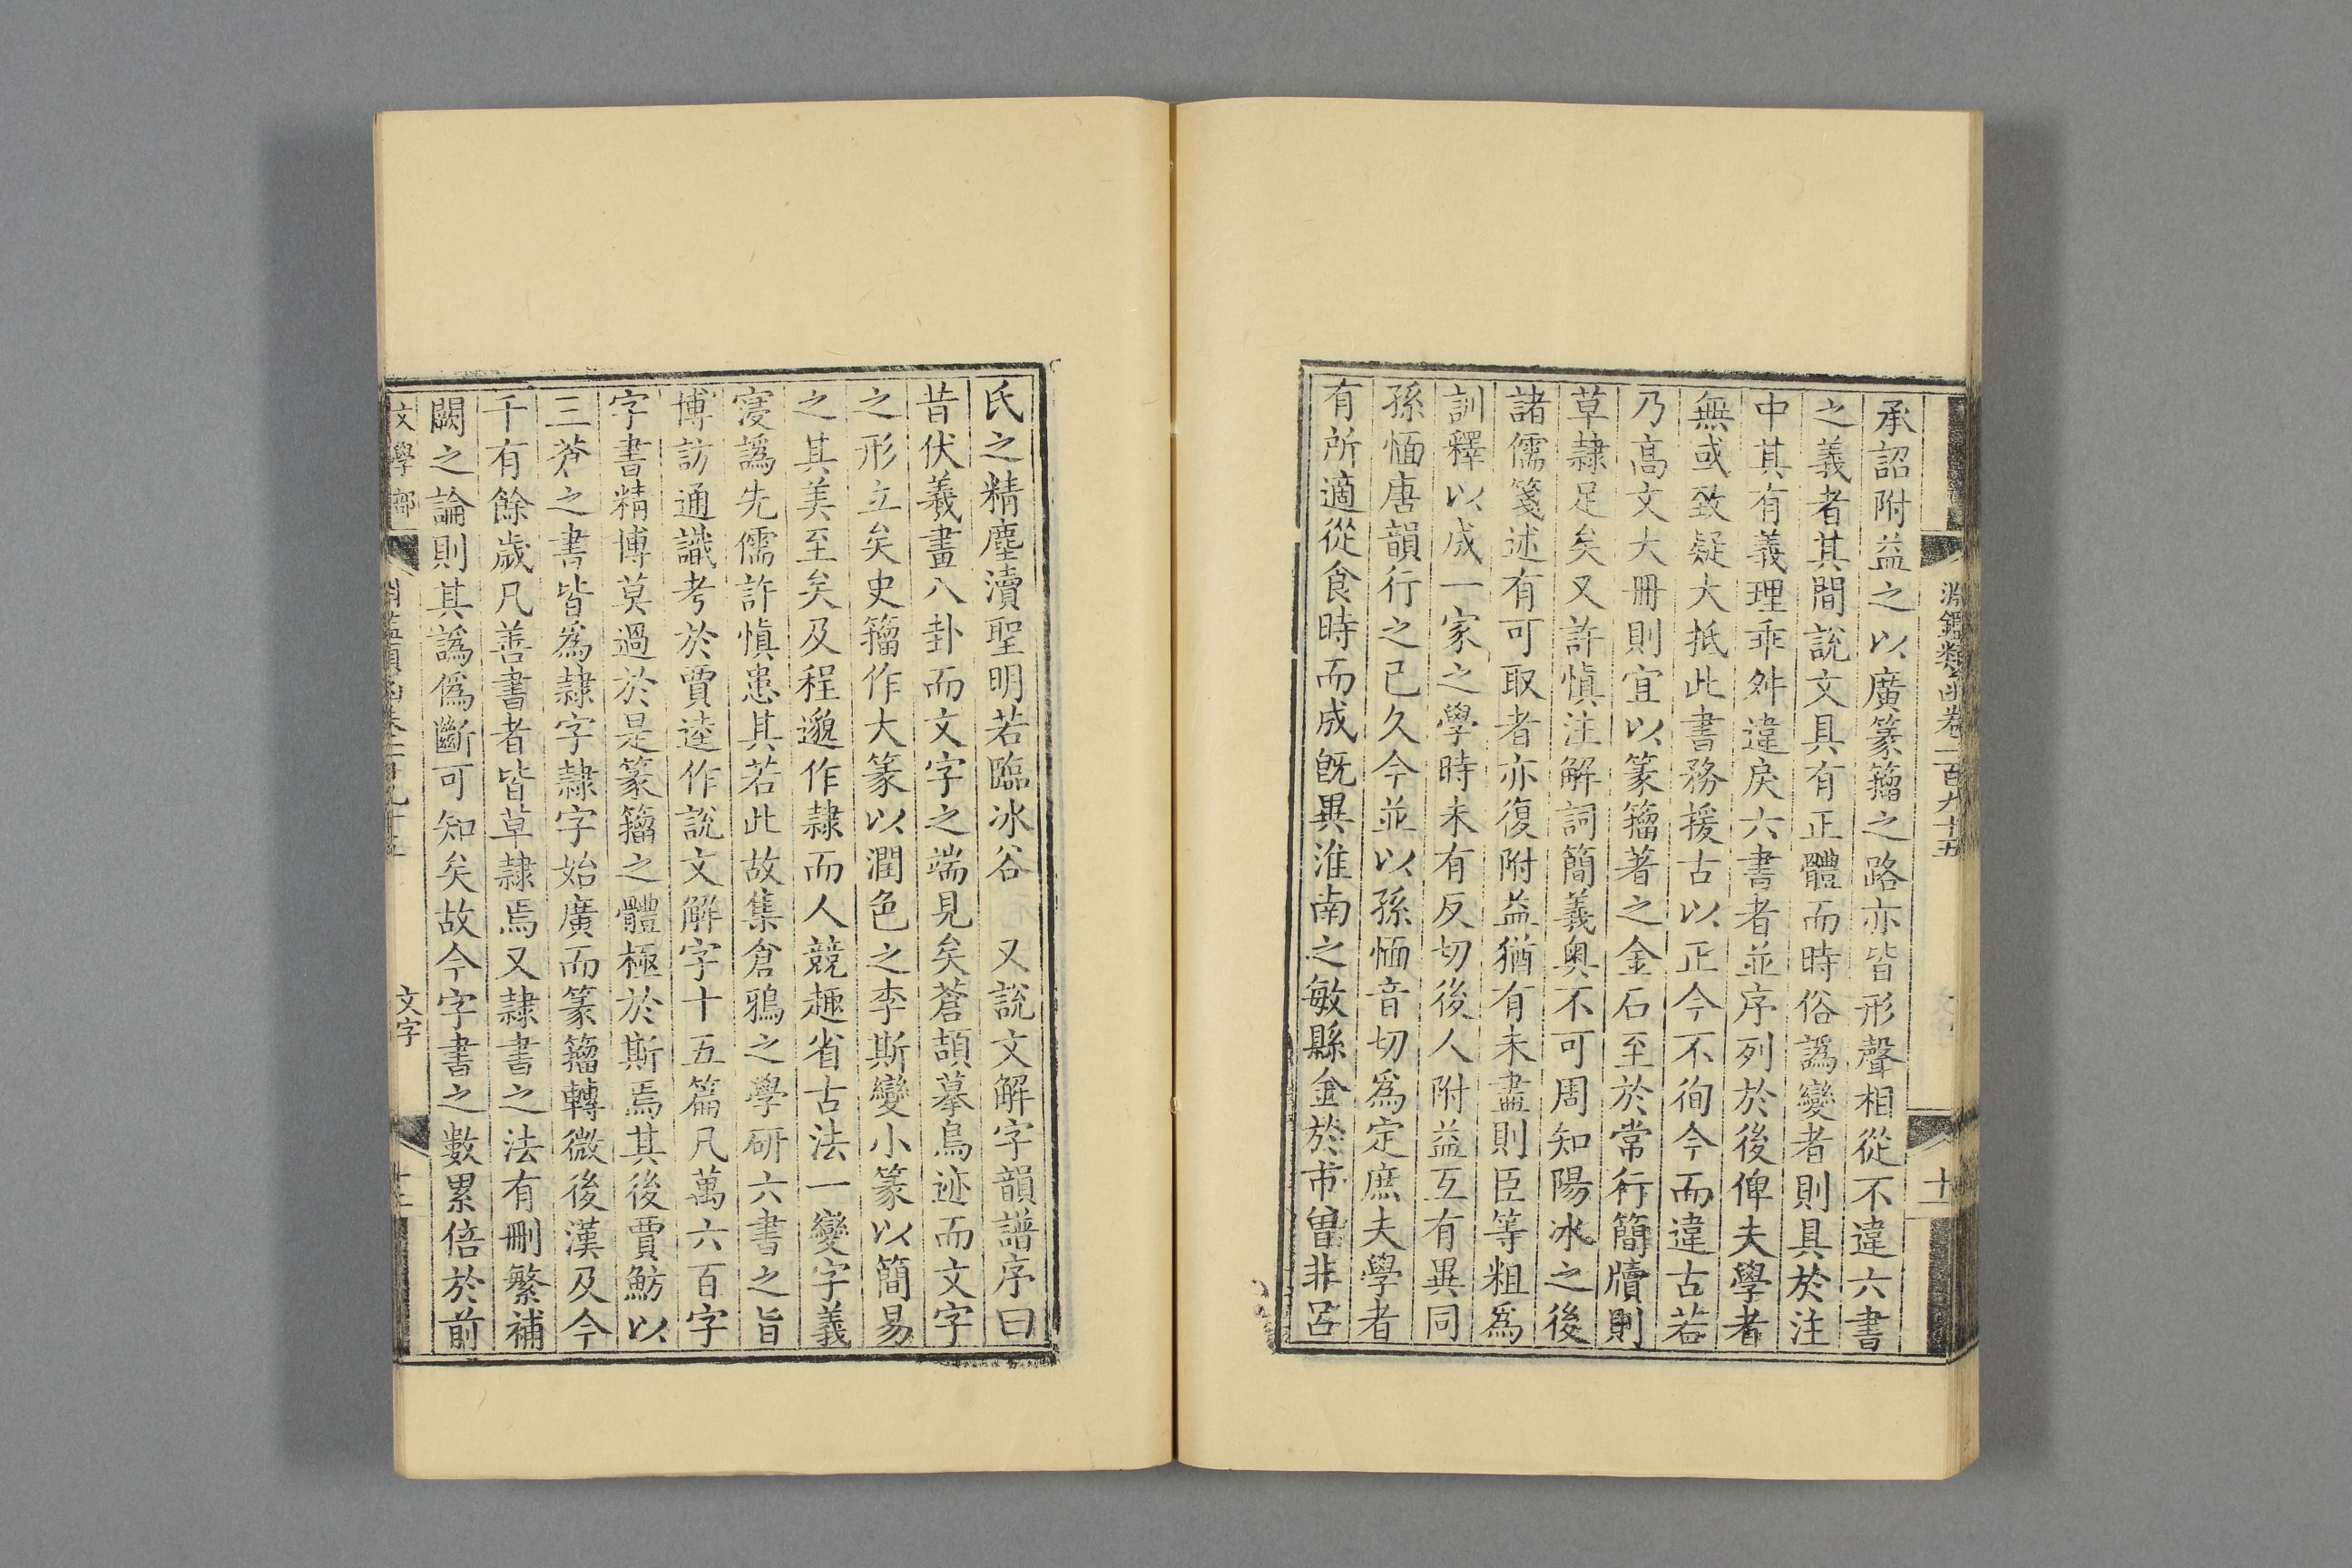 淵鑑類函卷一百九十五
十一
承詔附益之以廣篆籀之路亦皆形聲相從不違六書
之義者其間說文具有正體而時俗譌變者則具於注
中其有義理乖舛違戾六書者並序列於後俾夫學者
無或致疑大抵此書務援古以正今不徇今而違古若
乃高文大冊則宜以篆籀著之金石至於常行簡牘則
草隸足矣又許慎注解詞簡義奧不可周知陽冰之後
諸儒箋述有可取者亦復附益猶有未盡則臣等粗爲
訓釋以成一家之學時未有反切後人附益互有異同
孫愐唐韻行之已久今並以孫愐音切爲定庶夫學者
有所適從食時而成旣異淮南之敏縣金於市曾非呂
氏之精塵瀆聖明若臨冰谷 又說文解字韻譜序曰
昔伏羲畫八卦而文字之端見矣蒼頡摹鳥迹而文字
之形立矣史籀作大篆以潤色之李斯變小篆以簡易
之其美至矣及程邈作隸而人競趣省古法一變字義
寖譌先儒許慎患其若此故集倉雅之學研六書之旨
博訪通識考於賈逵作說文解字十五篇凡萬六百字
字書精博莫過於是篆籀之體極於斯焉其後賈魴以
三蒼之書皆爲隸字隸字始廣而篆籀轉微後漢及今
千有餘歲凡善書者皆草隸焉又隸書之法有刪繁補
闕之論則其譌僞斷可知矣故今字書之數累倍於前
文學部
淵鑑類函卷一百九十五
文字
十二